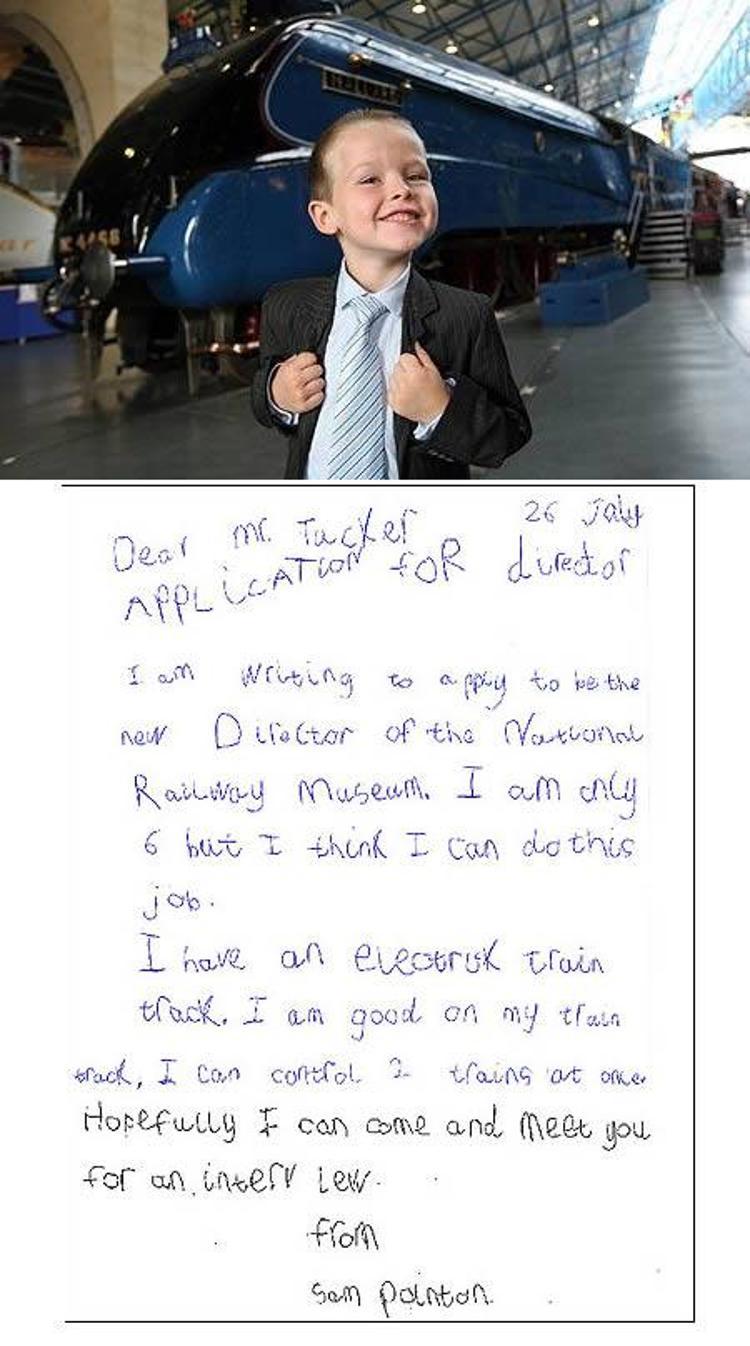 4468
Dear Mr. Tucker 26 July
APPLiCATION fOR director
I am writing to apply to be the
new Director of the National
Railway Museum. I am only
6 but I think I can do this
job.
I have an electrik train
track. I am good on my train
track, I can control 2 trains at once
Hopefully I can come and meet you
for an interview.
from
Sam pointon.